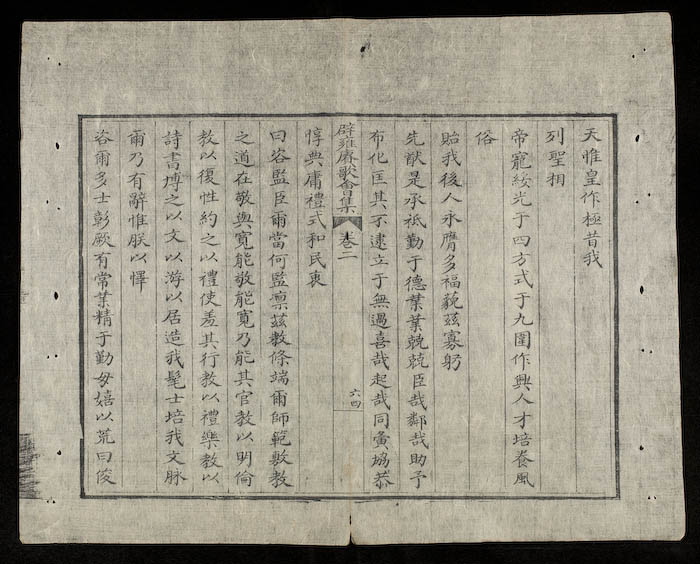 天惟皇作極昔我
列聖相
帝寵綏光于四方式于九圍作興人才培養風
俗
貽我後人永膺多福藐茲寡躬
先猷是承祗勤于德業業兢兢臣哉鄰哉助予
布化匡其不逮立于無過喜哉起哉同寅協恭
惇典庸禮式和民衷
辟雍賡歌會集 卷二
六四
曰咨監臣爾當何監凛茲教條端爾師範敷教
之道在敬與寬能敬能寬乃能其官教以明倫
教以復性約之以禮使羞其行教以禮樂教以
詩書博之以文以游以居造我髦士培我文脉
爾乃有辭惟朕以懌
咨爾多士彰厥有常業精于勤毋嬉以荒曰俊